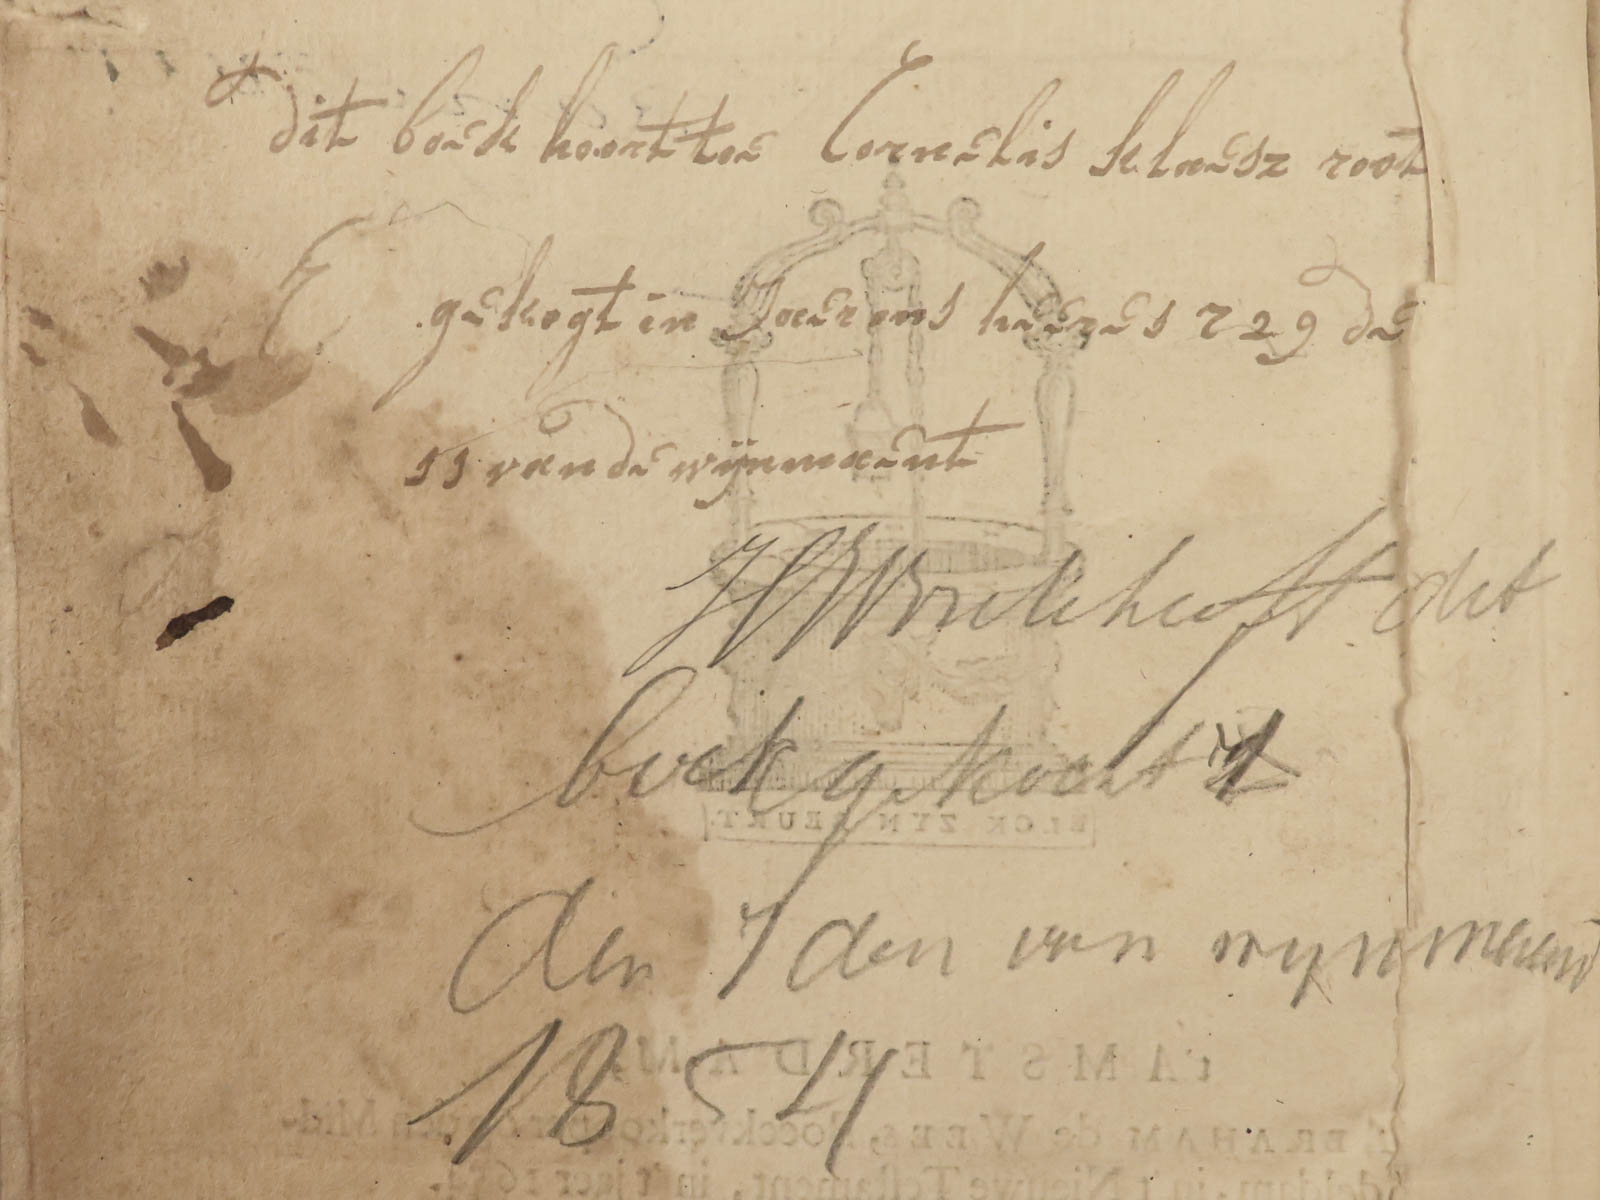 dit boek hoort toe Cornelis klaesz root
gekogt in Jaer ons heeres 1729 de
11 van de wijnmaent
heeft dit
boek gekocht
den 7 den van wynmaand
1854
ELCK ZYN BEURT.
t'AMSTERDAM,
ABRAHAM de WEES, Boeckverkooper, op den Mid-
deldam, in 't Nieuwe Testament, in 't jaer 1654.